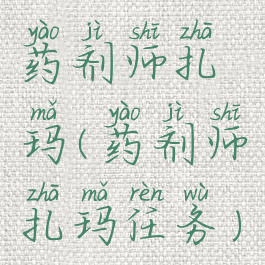 yào jì shī zhā
药剂师扎
mǎ yào jì shī
玛(药剂师
zhā mǎ rèn wù
扎玛任务)